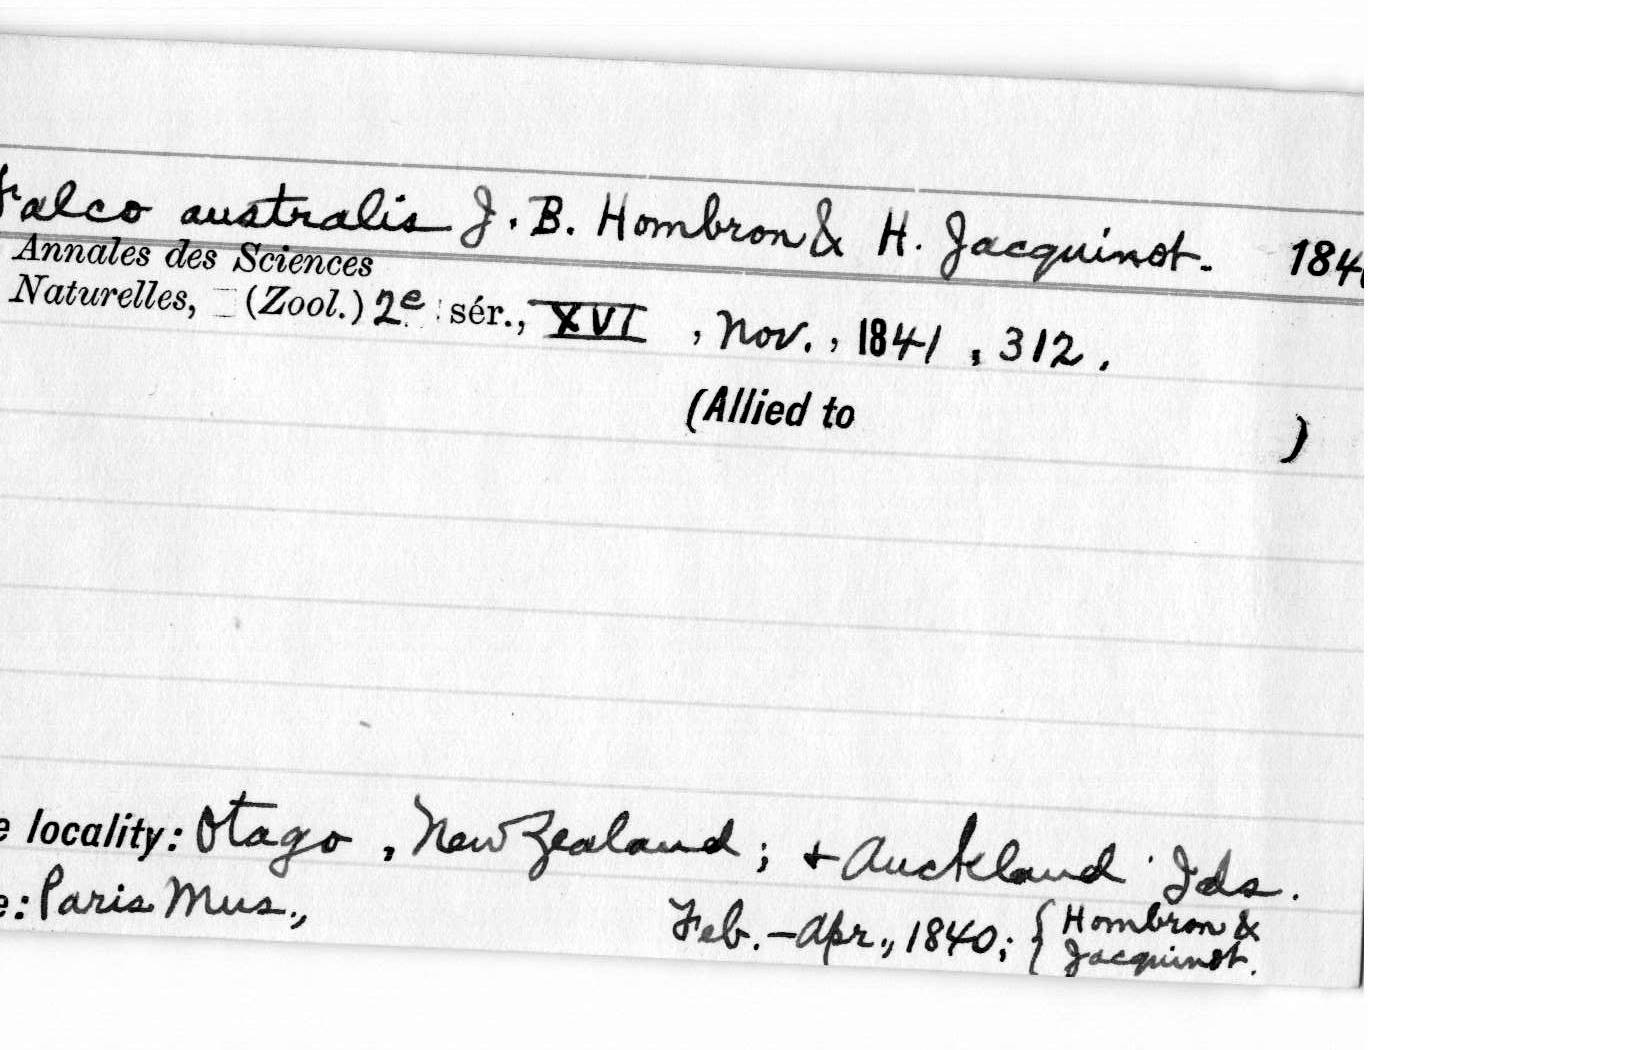 Falco australis J. B. Hombron & H. Jacquinot. 184
Annales des Sciences
Naturelles, (Zool.) 2e sér., XVI, Nov., 1841, 312.
(Allied to )
e locality: Otago, New Zealand; + Auckland Ids.
e: Paris Mus., Feb.-Apr., 1840; { Hombron &
Jacquinot.